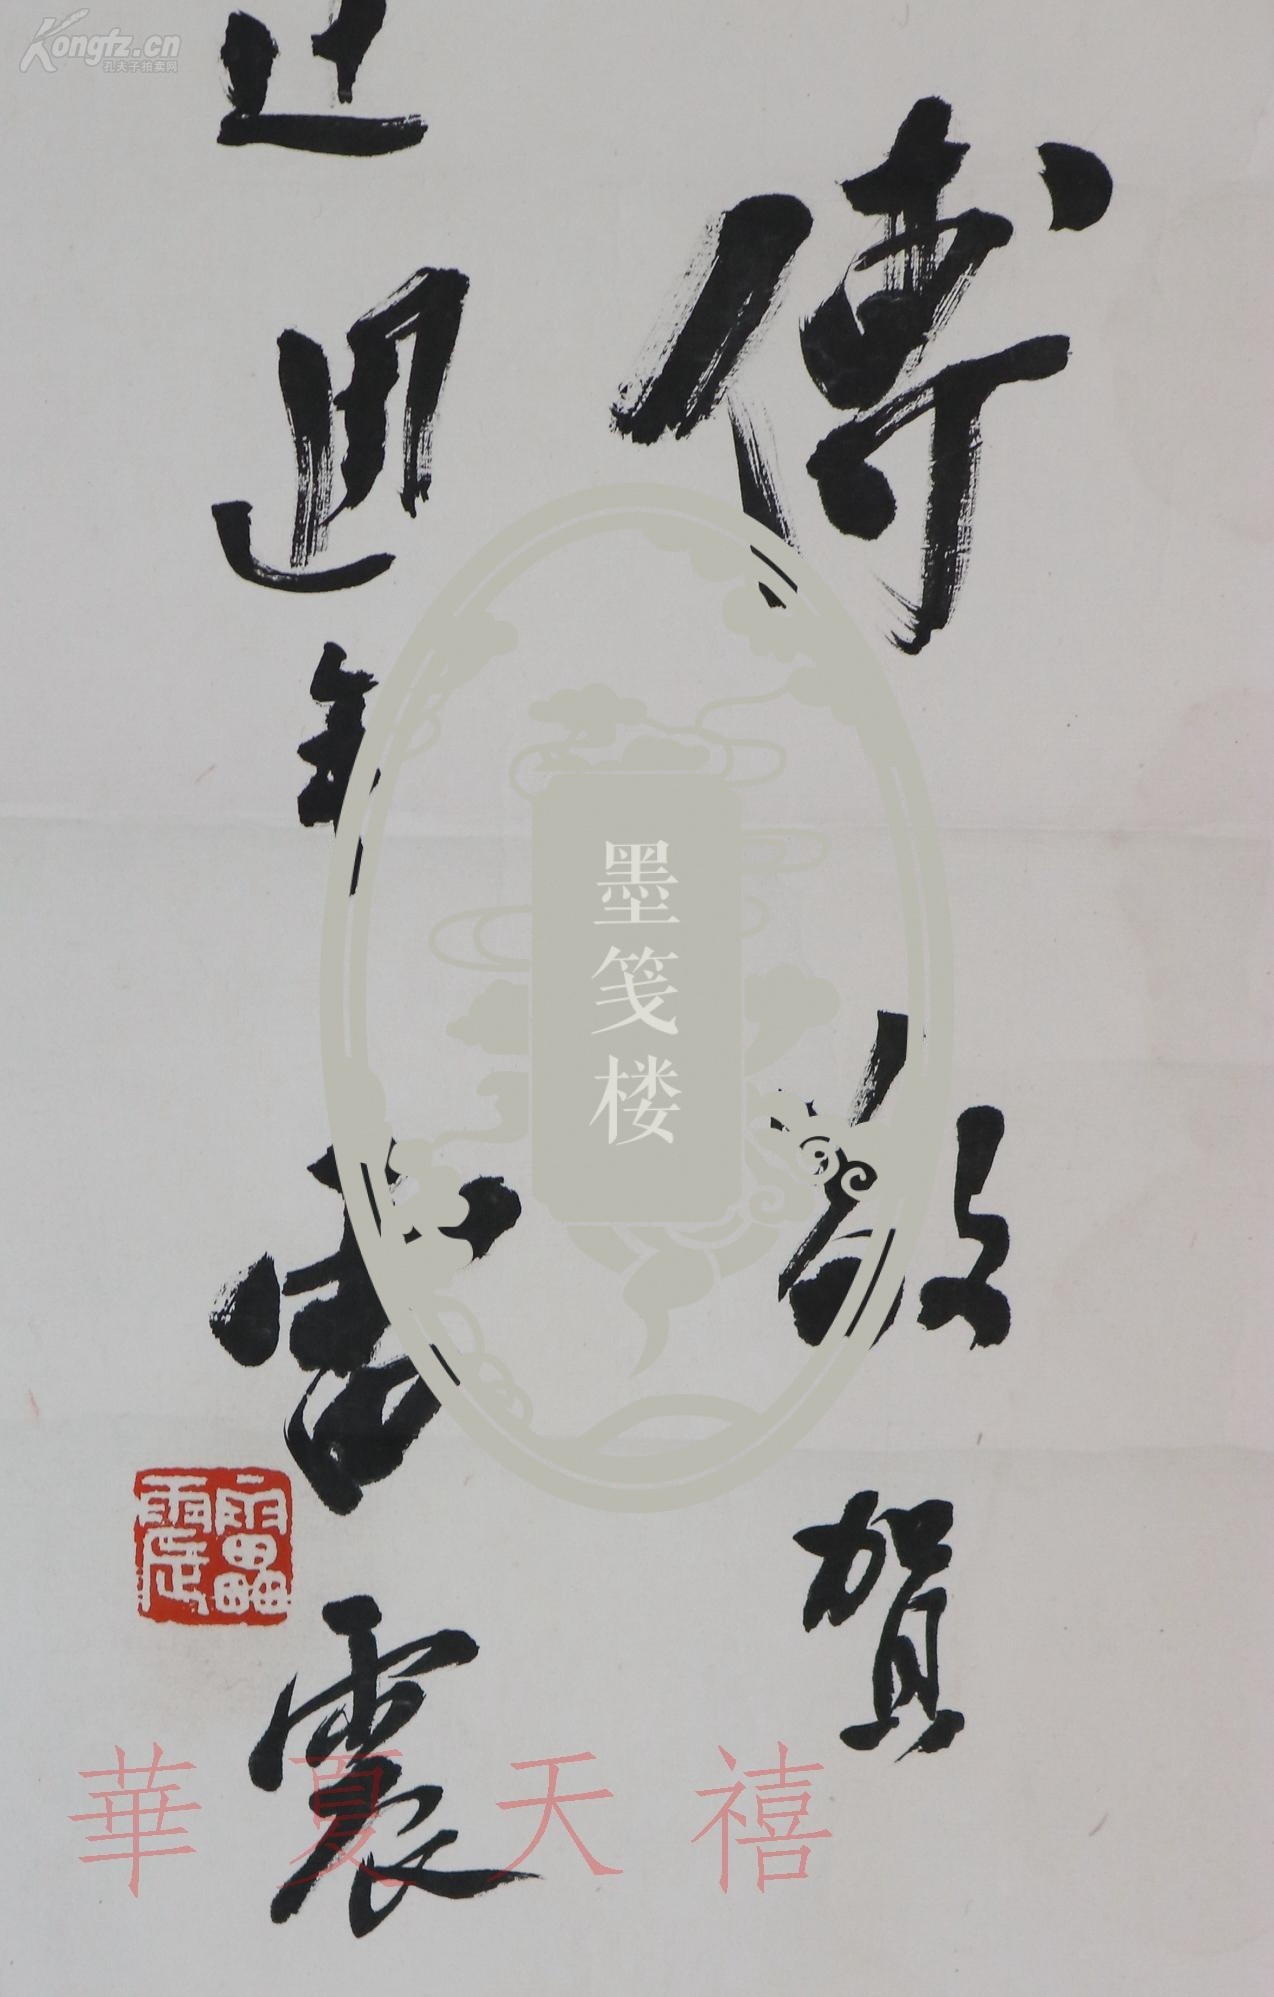 Kongfz.cn
孔夫子拍卖网
傳
敬賀
週年
雷震
雷震
墨笺楼
華夏天禧